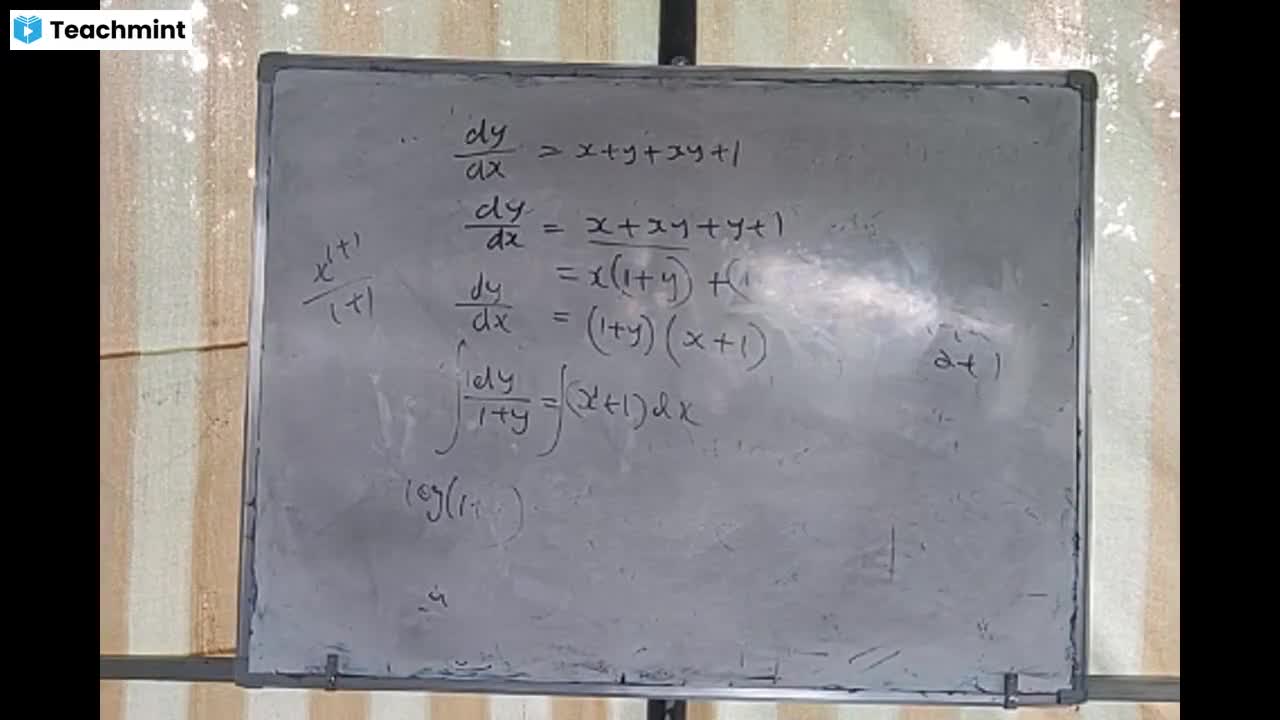 Teachmint
dy/dx = x+y+xy+1
dy/dx = x+xy+y+1
= x(1+y) + (1
dy/dx = (1+y)(x+1)
x^1+1/1+1
2+1
∫1dy/1+y = ∫(x^1+1)dx
log(1+